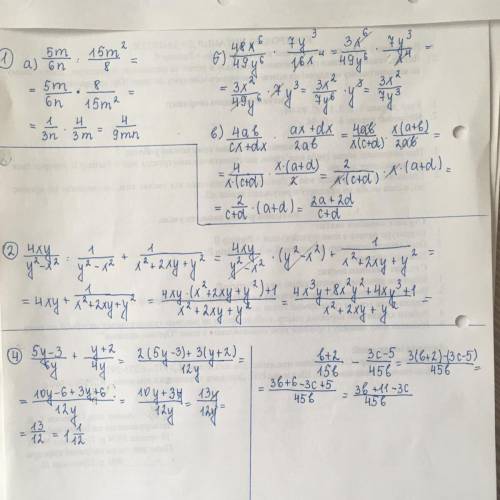 ① а) 5m/6n : 15m²/8 =
= 5m/6n · 8/15m² =
= 1/3n · 4/3m = 4/9mn
б) 48x⁶/49y⁶ · 7y³/16x⁴ = 3x⁶/49y⁶ · 7y³/x⁴ =
= 3x²/49y⁶ · 7y³ = 3x²/7y⁶ · y³ = 3x²/7y³
в) 4ab/cx+dx · ax+dx/2ab = 4ab/x(c+d) · x(a+b)/2ab =
= 4/x·(c+d) · x·(a+d)/2 = 2/x·(c+d) · x·(a+d) =
= 2/c+d · (a+d) = 2a+2d/c+d
② 4xy/y²-x² : 1/y²-x² + 1/x²+2xy+y² = 4xy/y²-x² · (y²-x²) + 1/x²+2xy+y² =
= 4xy + 1/x²+2xy+y² = 4xy·(x²+2xy+y²)+1/x²+2xy+y² = 4x³y+8x²y²+4xy³+1/x²+2xy+y² =
④ 5y-3/6y + y+2/4y = 2(5y-3)+3(y+2)/12y =
= 10y-6+3y+6/12y = 10y+3y/12y = 13y/12y =
= 13/12 = 1 1/12
b+2/15b - 3c-5/45b = 3(b+2)-(3c-5)/45b =
= 3b+6-3c+5/45b = 3b+11-3c/45b